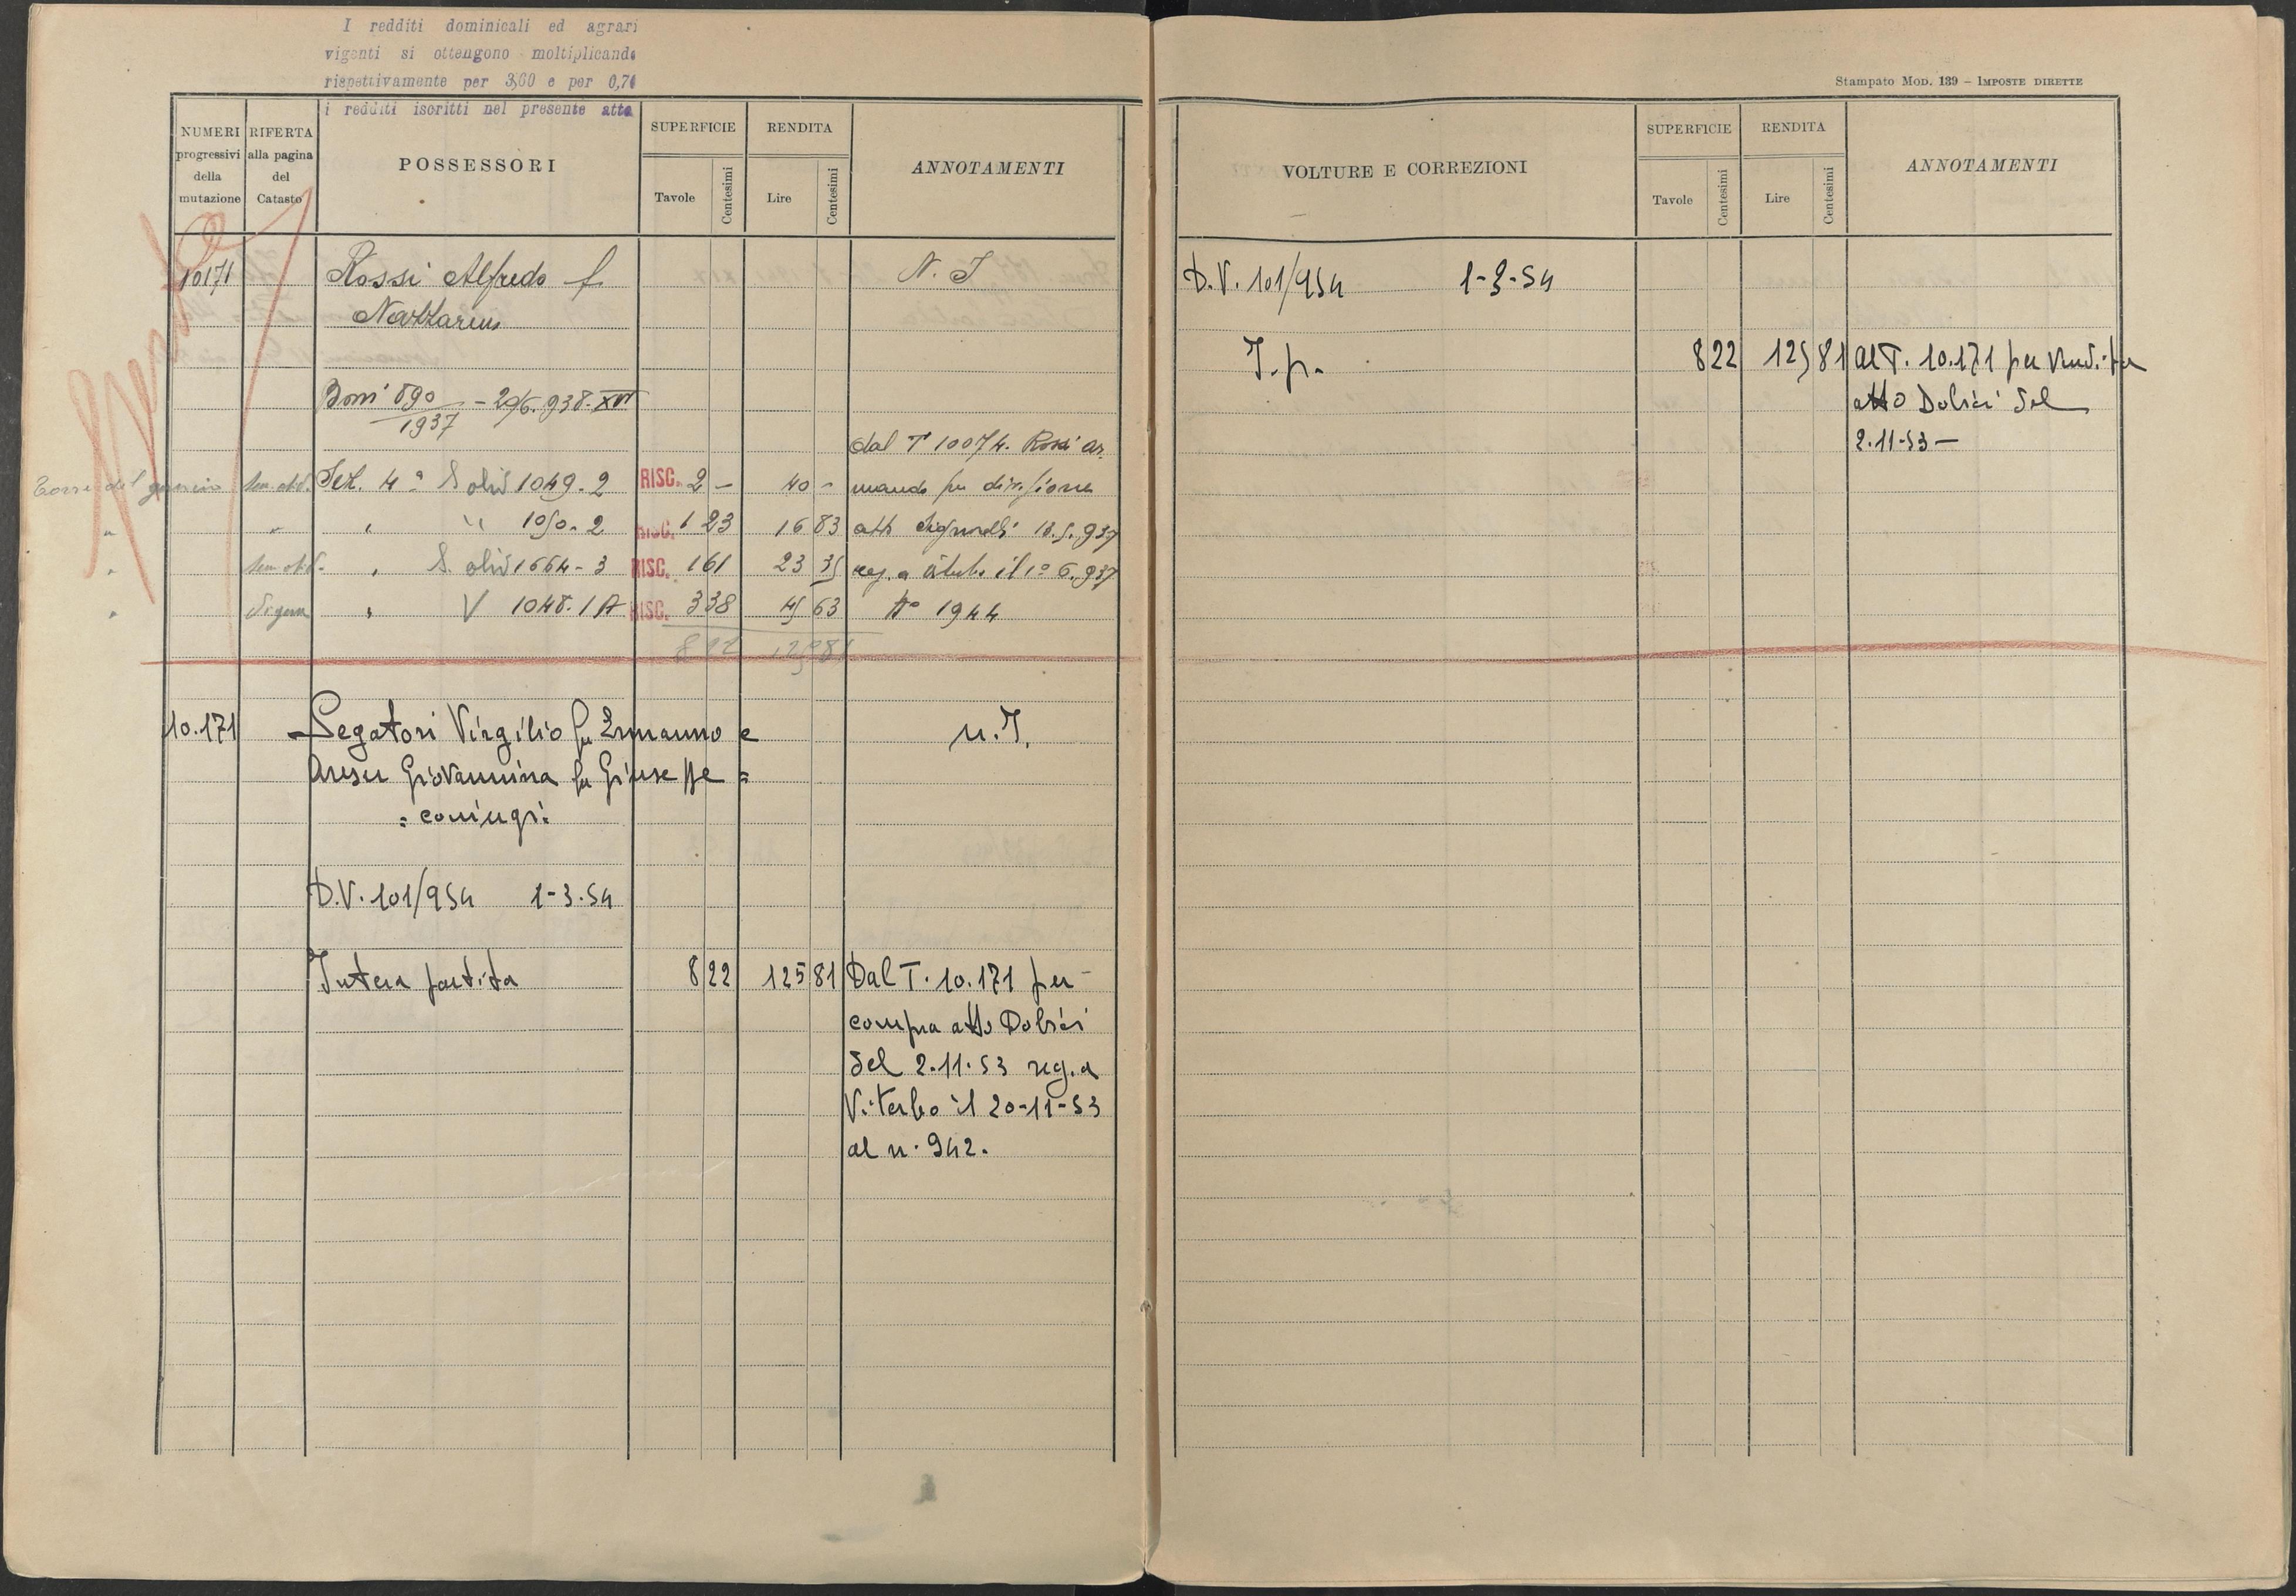 I redditi dominicali ed agrari
vigenti si ottengono moltiplicando
rispettivamente per 3,60 e per 0,70
i redditi iscritti nel presente atto
Stampato Mod. 139 – Imposte dirette
NUMERI progressivi della mutazione
RIFERTA alla pagina del Catasto
POSSESSORI
SUPERFICIE
Tavole
Centesimi
RENDITA
Lire
Centesimi
ANNOTAMENTI
VOLTURE E CORREZIONI
SUPERFICIE
Tavole
Centesimi
RENDITA
Lire
Centesimi
ANNOTAMENTI
10171 Rossi Alfredo f. N. I
Nazzareno
890/1937 - 20/6.938.XVI
dal T 10074. Rossi Ar
Sez. 4ª S oliv 1049-2 RISC. 2 - 40 - mando per divisione
" " " 1050-2 RISC. 1 23 16 83 atto 18.5.937
" S. oliv 1664-3 RISC. 1 61 23 35 reg. a Viterbo il 1º 6.937
" " V 1048.1A RISC. 3 38 45 63 Nº 1944
8 22 125 81
10.171 Segatori Virgilio fu Ermanno e n. I.
Giovannina fu Giuseppe =
= coniugi:
D.V. 101/954 1-3.54
Intera partita 8 22 125 81 Dal T. 10.171 per
compra atto Dobici
del 2.11.53 reg. a
Viterbo il 20-11-53
al n. 942.
D.V. 101/954 1-3-54
I.p. 8 22 125 81 al T. 10.171 per vend. per
atto Dobici del
2.11-53 -